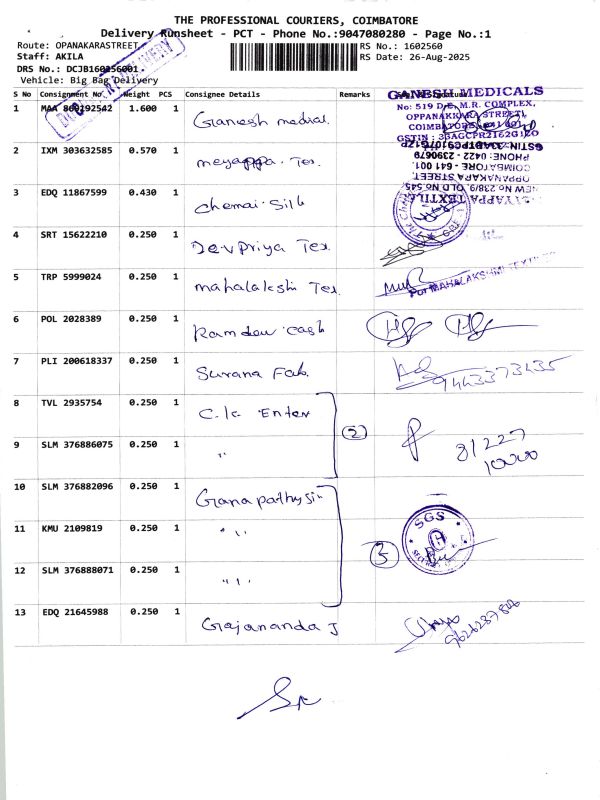 THE PROFESSIONAL COURIERS, COIMBATORE
Delivery Runsheet - PCT - Phone No.:9047080280 - Page No.:1
Route: OPANAKARASTREET
RS No.: 1602560
Staff: AKILA
RS Date: 26-Aug-2025
DRS No.: DCJB160256001
Vehicle: Big Bag Delivery
S No Consignment No. Weight PCS Consignee Details Remarks
1 MAA 860192542 1.600 1 Ganesh medical
GANESH MEDICALS
No: 519 D/E, M.R. COMPLEX,
OPPANAKKARA STREET,
2 IXM 303632585 0.570 1 meyappa. Tex.
PHONE: 0422 - 2390679
COIMBATORE - 641 001.
OPPANAKARA STREET,
NEW No 239/9, OLD No 545
3 EDQ 11867599 0.430 1 Chennai. Silk
4 SRT 15622210 0.250 1 Devpriya Tex.
5 TRP 5999024 0.250 1 mahalakshi Tex.
For MAHALAKSHMI TEXTILES
6 POL 2028389 0.250 1 Ramdev cash
7 PLI 200618337 0.250 1 Surana Fab.
9443373435
8 TVL 2935754 0.250 1 C.k Enter
2
81227
10000
9 SLM 376886075 0.250 1 "
10 SLM 376882096 0.250 1 Ganapathy Sin
SGS
11 KMU 2109819 0.250 1 " "
3
12 SLM 376888071 0.250 1 " "
13 EDQ 21645988 0.250 1 Gajananda J